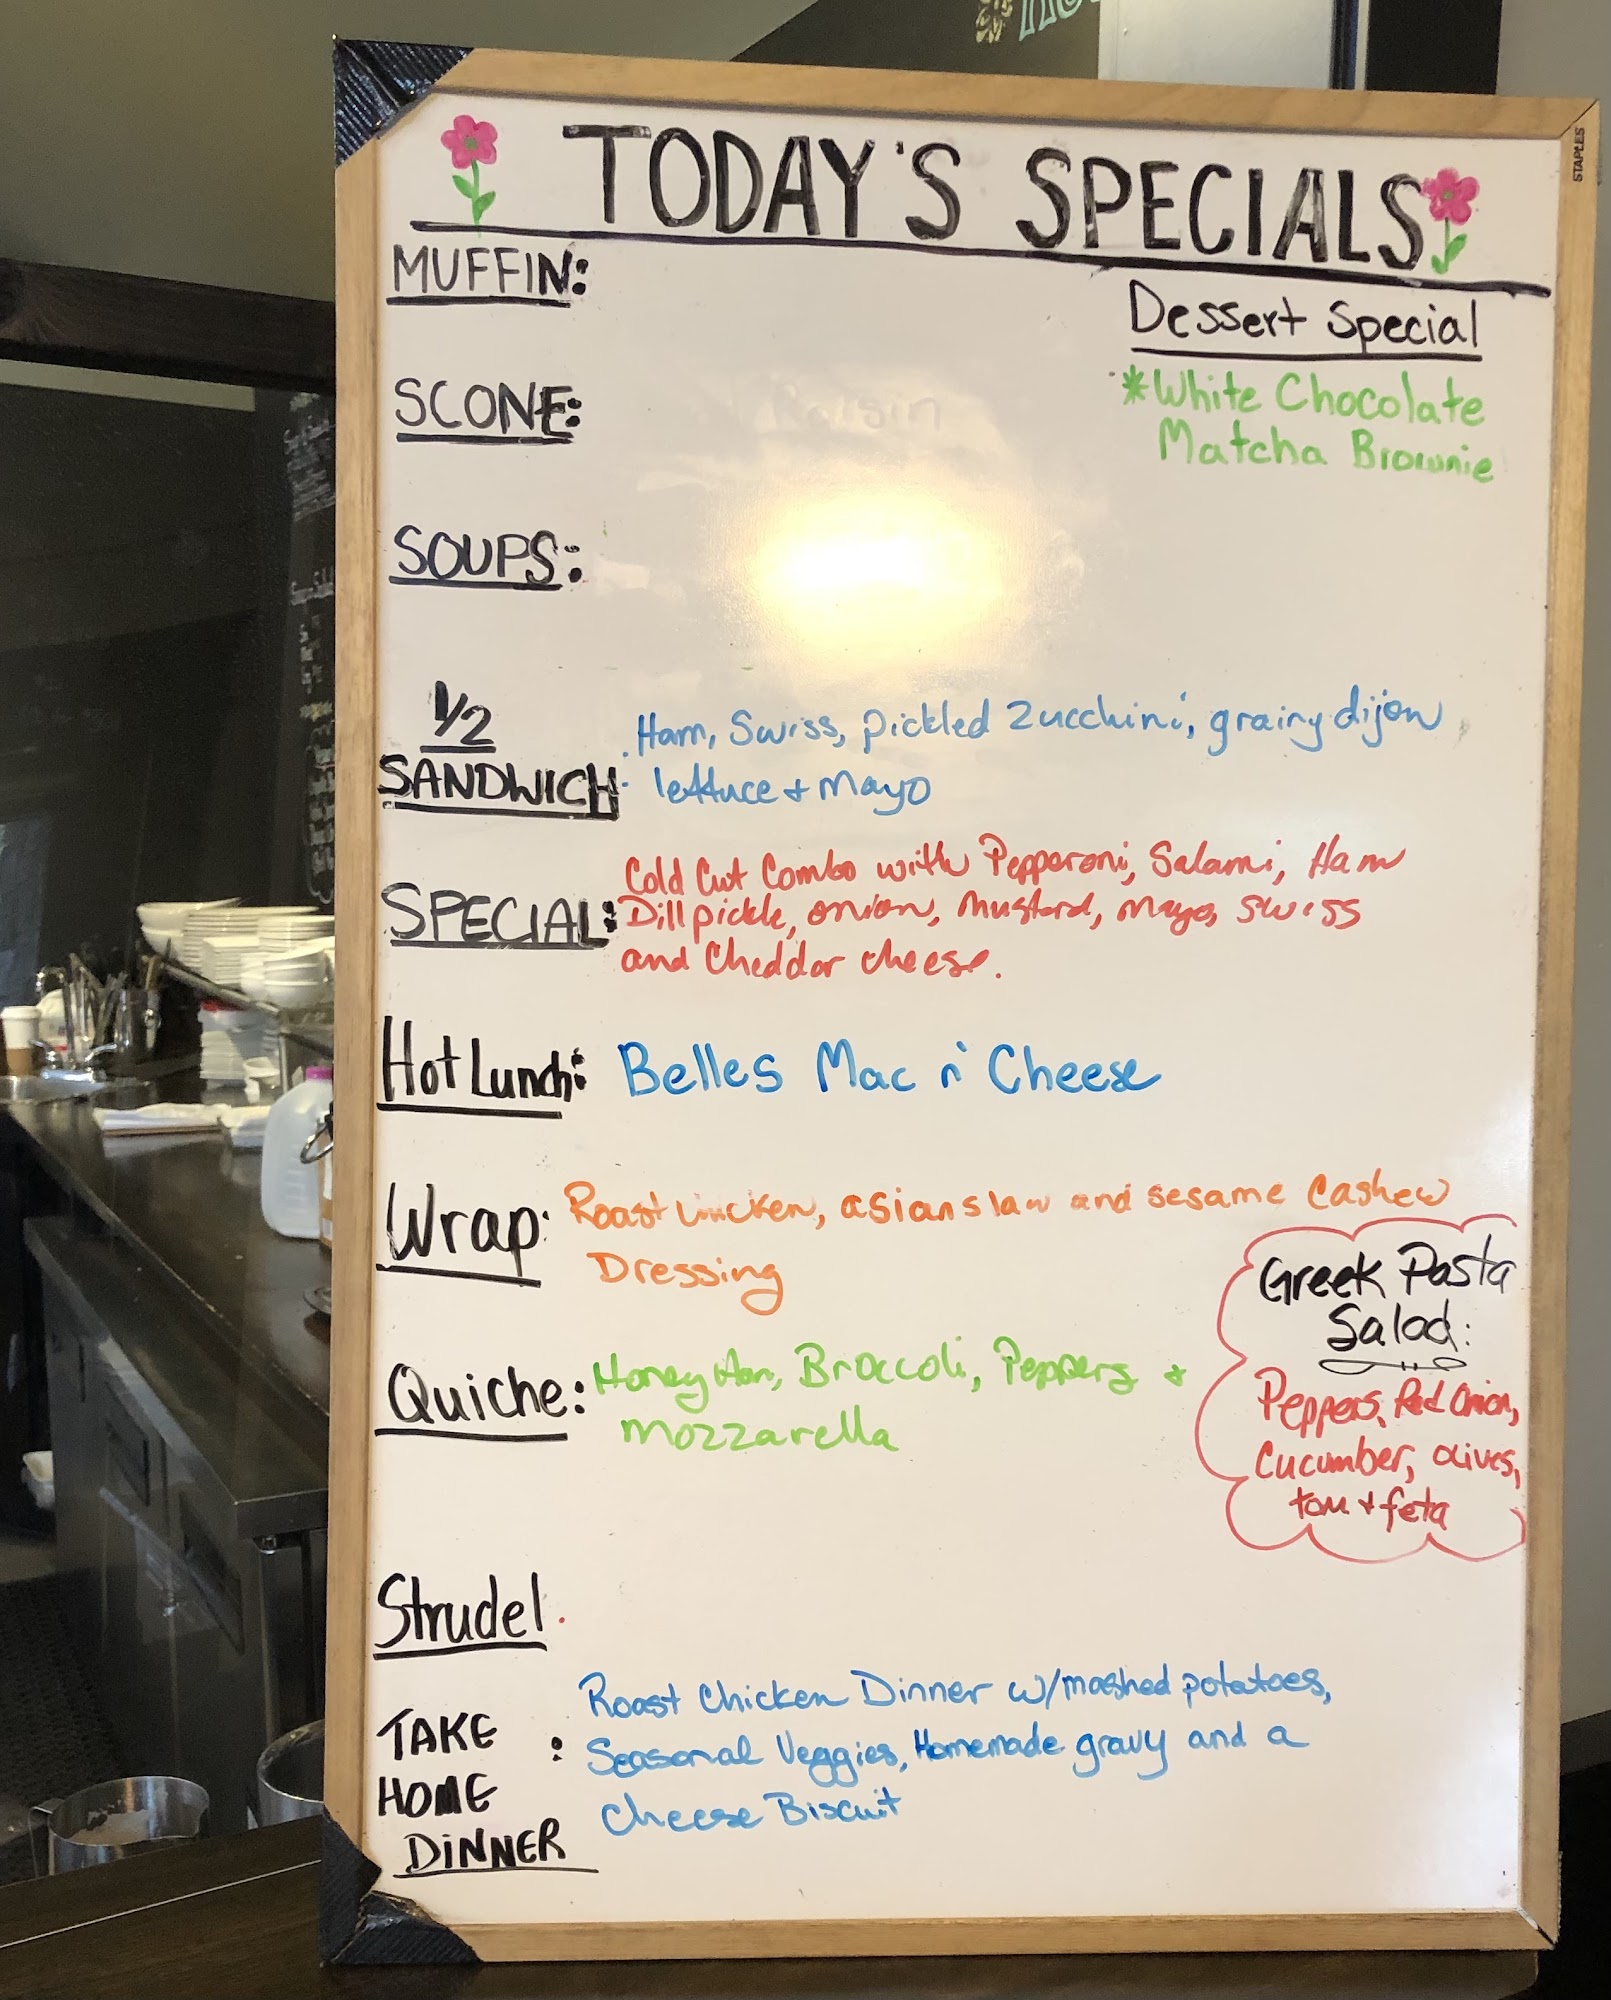 TODAY'S SPECIALS
MUFFIN:
Dessert Special
*White Chocolate
Matcha Brownie
SCONE:
Raisin
SOUPS:
1/2
SANDWICH:
Ham, Swiss, pickled Zucchini, grainy dijon
lettuce + Mayo
SPECIAL:
Cold Cut Combo with Pepperoni, Salami, Ham
Dill pickle, onion, Mustard, Mayo, Swiss
and Cheddar cheese.
Hot Lunch:
Belles Mac n' Cheese
Wrap:
Roast chicken, asian slaw and sesame Cashew
Dressing
Quiche:
Honey Ham, Broccoli, Peppers +
Mozzarella
Greek Pasta
Salad:
Peppers, Red Onion,
Cucumber, olives,
tom + feta
Strudel.
TAKE
HOME
DINNER
:
Roast Chicken Dinner w/mashed potatoes,
Seasonal Veggies, Homemade gravy and a
Cheese Biscuit
STAPLES